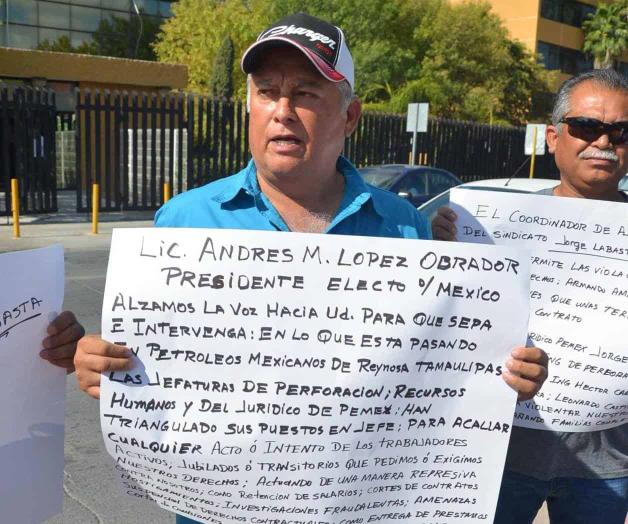 Charger
LIC. ANDRES M. LOPEZ OBRADOR
PRESIDENTE ELECTO D/MEXICO
ALZAMOS LA VOZ HACIA UD. PARA QUE SEPA
E INTERVENGA: EN LO QUE ESTA PASANDO
EN PETROLEOS MEXICANOS DE REYNOSA TAMAULIPAS
LAS JEFATURAS DE PERFORACION; RECURSOS
HUMANOS Y DEL JURIDICO DE PEMEX: HAN
TRIANGULADO SUS PUESTOS EN JEFE: PARA ACALLAR
CUALQUIER ACTO ó INTENTO DE LOS TRABAJADORES
ACTIVOS; JUBILADOS ó TRANSITORIOS QUE PEDIMOS ó EXIGIMOS
NUESTROS DERECHOS; ACTUANDO DE UNA MANERA REPRESIVA
CONTRA NOSOTROS; COMO RETENCION DE SALARIOS; CORTES DE CONTRATOS
HOSTIGAMIENTO; INVESTIGACIONES FRAUDALENTAS; AMENAZAS
SUSPENCION DE DERECHOS CONTRACTUALES; COMO ENTREGA DE PRESTAMOS
EL COORDINADOR DE A
DEL SINDICATO JORGE LABAST
ERMITE LAS VIOLA
ECHOS; ARMANDO AM
QUE UNAS TER
CONTRATO
RIDICO PEMEX JORGE
ING DE PERFORA
ING HECTOR GAR
LEONARDO CAST
VIOLENTAR NUESTR
FAMILIAS
ASTA